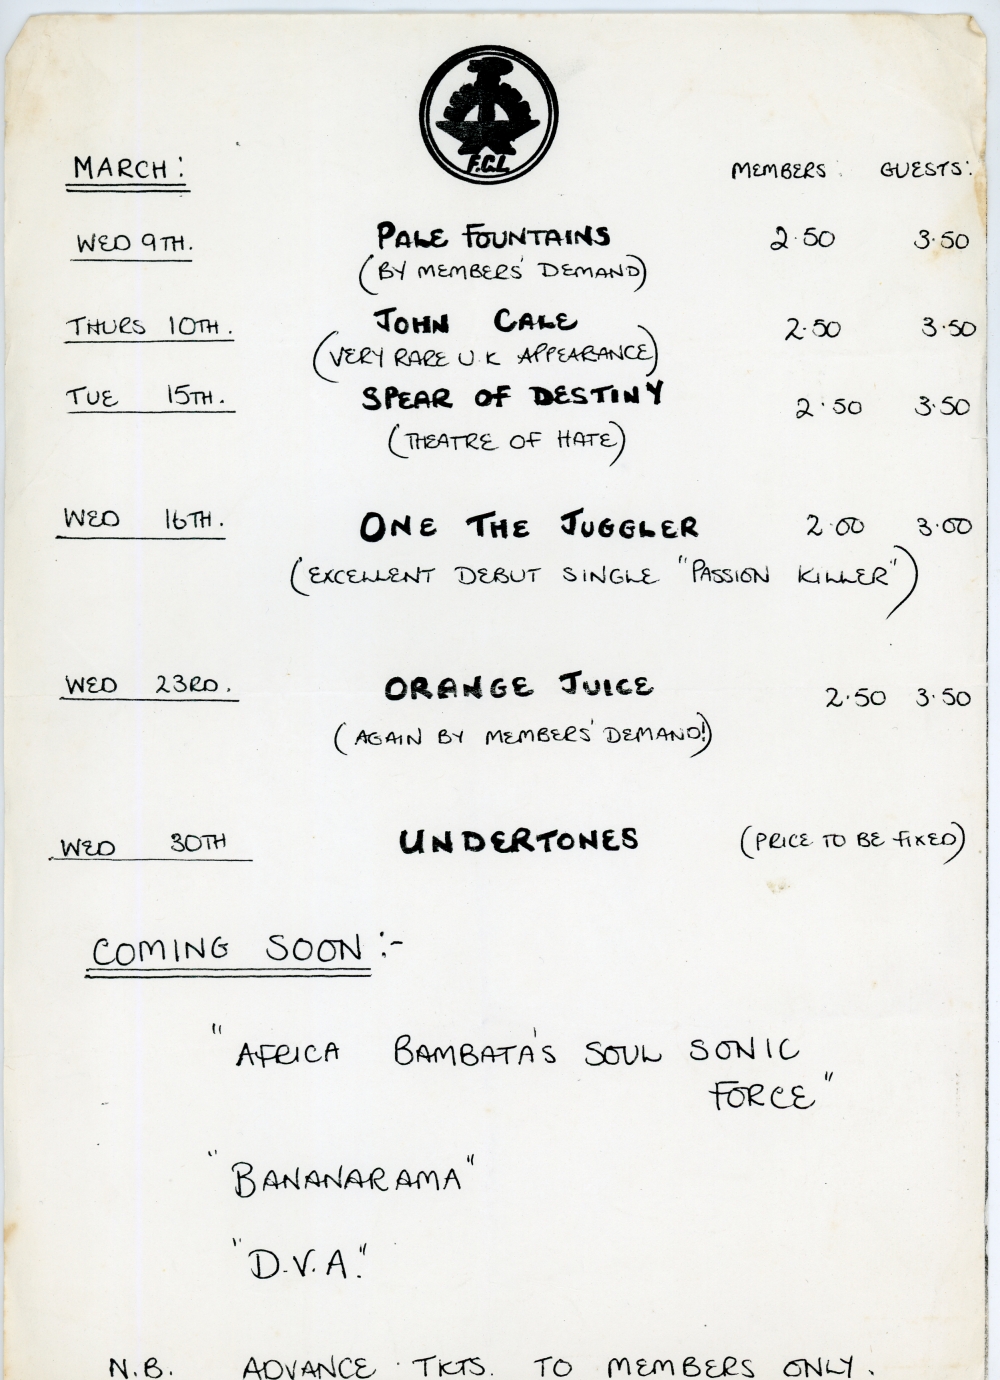 F.C.L
MARCH: MEMBERS: GUESTS:
WED 9TH. PALE FOUNTAINS 2.50 3.50
(BY MEMBERS' DEMAND)
THURS 10TH. JOHN CALE 2.50 3.50
(VERY RARE U.K APPEARANCE)
TUE 15TH. SPEAR OF DESTINY 2.50 3.50
(THEATRE OF HATE)
WED 16TH. ONE THE JUGGLER 2.00 3.00
(EXCELLENT DEBUT SINGLE "PASSION KILLER")
WED 23RD. ORANGE JUICE 2.50 3.50
(AGAIN BY MEMBERS' DEMAND!)
WED 30TH UNDERTONES (PRICE TO BE FIXED)
COMING SOON:-
"AFRICA BAMBATA'S SOUL SONIC
FORCE"
"BANANARAMA"
"D.V.A."
N.B. ADVANCE TKTS. TO MEMBERS ONLY.